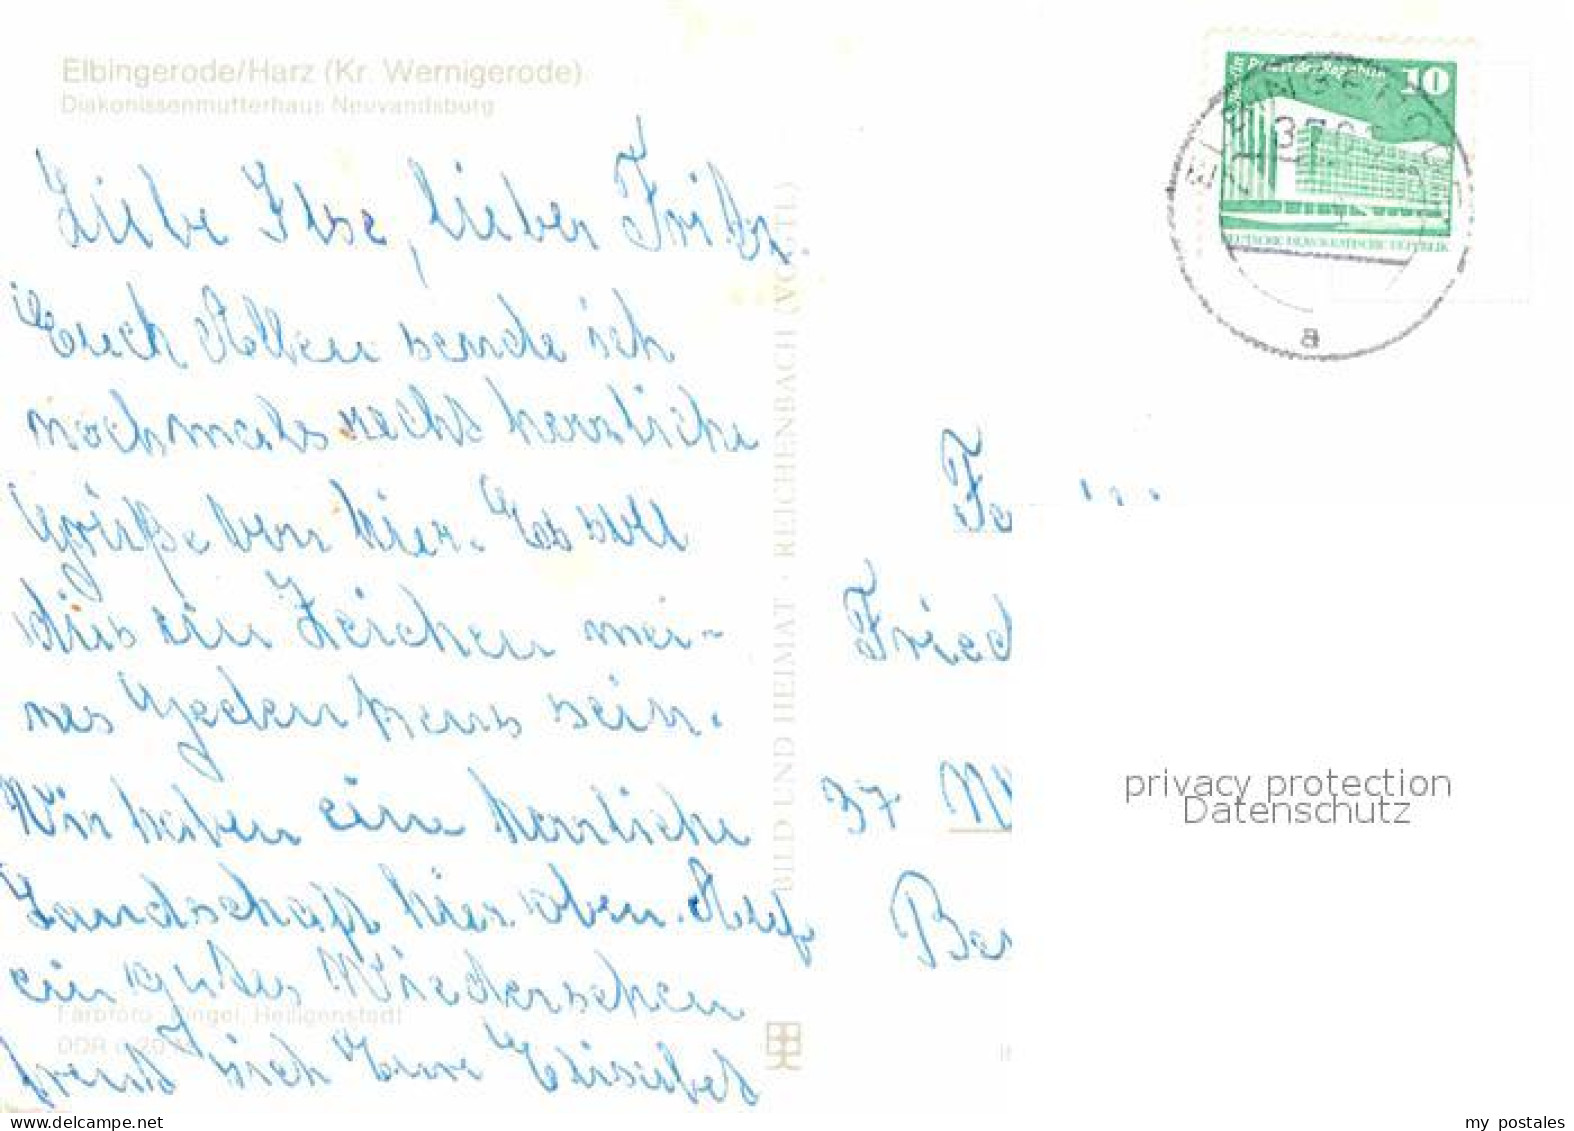 Elbingerode/Harz (Kr. Wernigerode)
Diakonissenmutterhaus Neuvandsburg
Liebe Ilse, lieber Fritz.
Euch Allen sende ich
nochmals recht herzliche
Grüße von hier. Es soll
dies ein Zeichen mei-
nes Gedenkens sein.
Wir haben eine herrliche
Landschaft hier oben. Auf
ein gutes Wiedersehen
freut sich Eure Elisabet
Heiligenstadt
DDR
BILD UND HEIMAT · REICHENBACH (VOGTL)
Palast der Republik 10
DEUTSCHE DEMOKRATISCHE REPUBLIK
a
Fa
Fried
37
Ber
privacy protection
Datenschutz
my postales